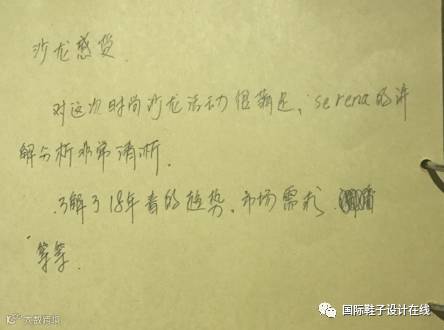 沙龙感受
对这次时尚沙龙活动很满足，serena的讲
解分析非常清晰.
了解了18年春的趋势、市场需求
等等.
大数跨境
国际鞋子设计在线